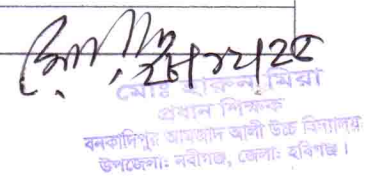 মোঃ হারুন মিয়া
প্রধান শিক্ষক
বনকাদিপুর আমজাদ আলী উচ্চ বিদ্যালয়
উপজেলা: নবীগঞ্জ, জেলা: হবিগঞ্জ।